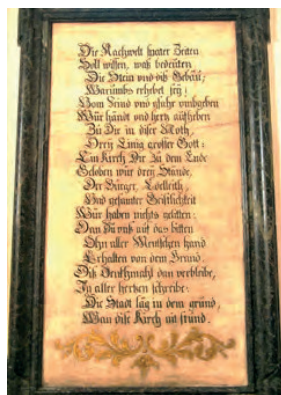 Die Nachwelt später Zeiten
Soll wissen, waß bedeüten
Die Stein und diß Gebäü;
Warumbs erhebet seÿ:
Vom Feind und gluht umbgeben
Wür händt und hertz aufheben
Zu Dir in diser Noth,
Dreÿ Einig grosser Gott:
Ein Kirch Dir zu dem Ende
Geloben wür dreÿ Stände.
Der Burger,
Und gesamter Geistlichkeit
Wür haben nichts gelitten:
Dan Du unß auf das bitten
Ohn aller Menschen hand
Erhalten von dem Brand.
Diß Denkhmahl dan verbleibe,
In aller hertzen schreibe:
Die Stadt läg in dem grund,
Wan dise Kirch nit stünd.